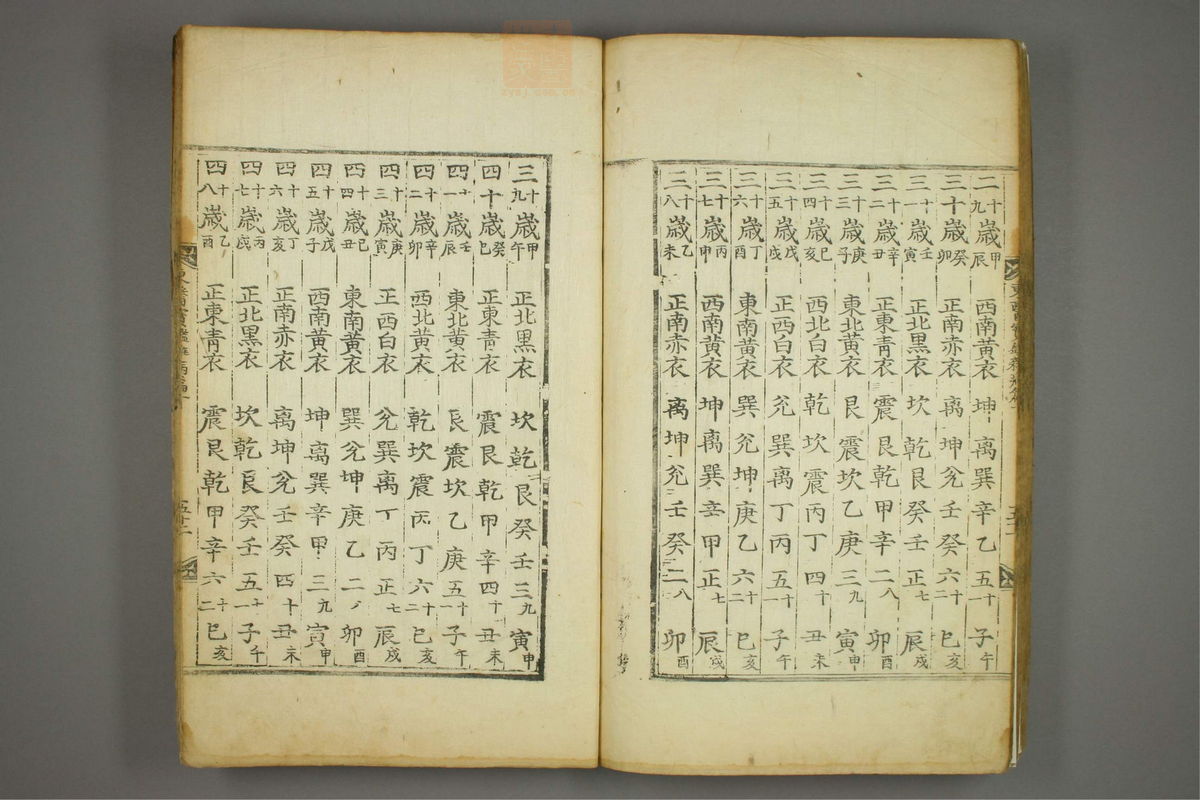 二十九歲甲辰 西南黃衣 坤離巽辛乙五十一子午
三十歲癸卯 正南赤衣 離坤兊壬癸六十二巳亥
三十一歲壬寅 正北黑衣 坎乾艮癸壬正七辰戌
三十二歲辛丑 正東靑衣 震艮乾甲辛二八卯酉
三十三歲庚子 東北黃衣 艮震坎乙庚三九寅申
三十四歲巳亥 西北白衣 乾坎震丙丁四十丑未
三十五歲戊戌 正西白衣 兊巽离丁丙五十一子午
三十六歲丁酉 東南黃衣 巽兊坤庚乙六十二巳亥
三十七歲丙申 西南黃衣 坤离巽辛甲正七辰戌
三十八歲乙未 正南赤衣 离坤兊壬癸二八卯酉
三十九歲甲午 正北黑衣 坎乾艮癸壬三九寅申
四十歲癸巳 正東靑衣 震艮乾甲辛四十丑未
四十一歲壬辰 東北黃衣 艮震坎乙庚五十一子午
四十二歲辛卯 西北黃衣 乾坎震丙丁六十二巳亥
四十三歲庚寅 正西白衣 兊巽离丁丙正七辰戌
四十四歲巳丑 東南黃衣 巽兊坤庚乙二八卯酉
四十五歲戊子 西南黃衣 坤离巽辛甲三九寅申
四十六歲丁亥 正南赤衣 离坤兊壬癸四十丑未
四十七歲丙戌 正北黑衣 坎乾艮癸壬五十一子午
四十八歲乙酉 正東靑衣 震艮乾甲辛六十二巳亥